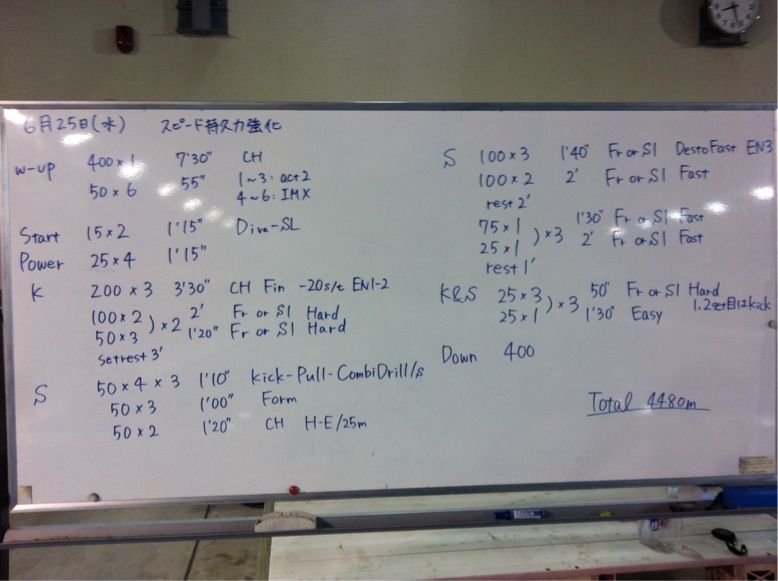 6月25日(水) スピード持久力強化
w-up 400×1 7'30" CH
50×6 55" 1~3: act2
4~6: IMX
Start 15×2 1'15" Dive-SL
Power 25×4 1'15"
K 200×3 3'30" CH Fin -20s/t EN1-2
100×2 ) ×2 2' Fr or S1 Hard
50×3 1'20" Fr or S1 Hard
setrest 3'
S 50×4×3 1'10" kick-Pull-CombiDrill/s
50×3 1'00" Form
50×2 1'20" CH H-E/25m
S 100×3 1'40" Fr or S1 DestoFast EN3
100×2 2' Fr or S1 Fast
rest 2'
75×1 ) ×3 1'30" Fr or S1 Fast
25×1 2' Fr or S1 Fast
rest 1'
K&S 25×3 ) ×3 50" Fr or S1 Hard
25×1 1'30" Easy 1.2set目はkick
Down 400
Total 4480m